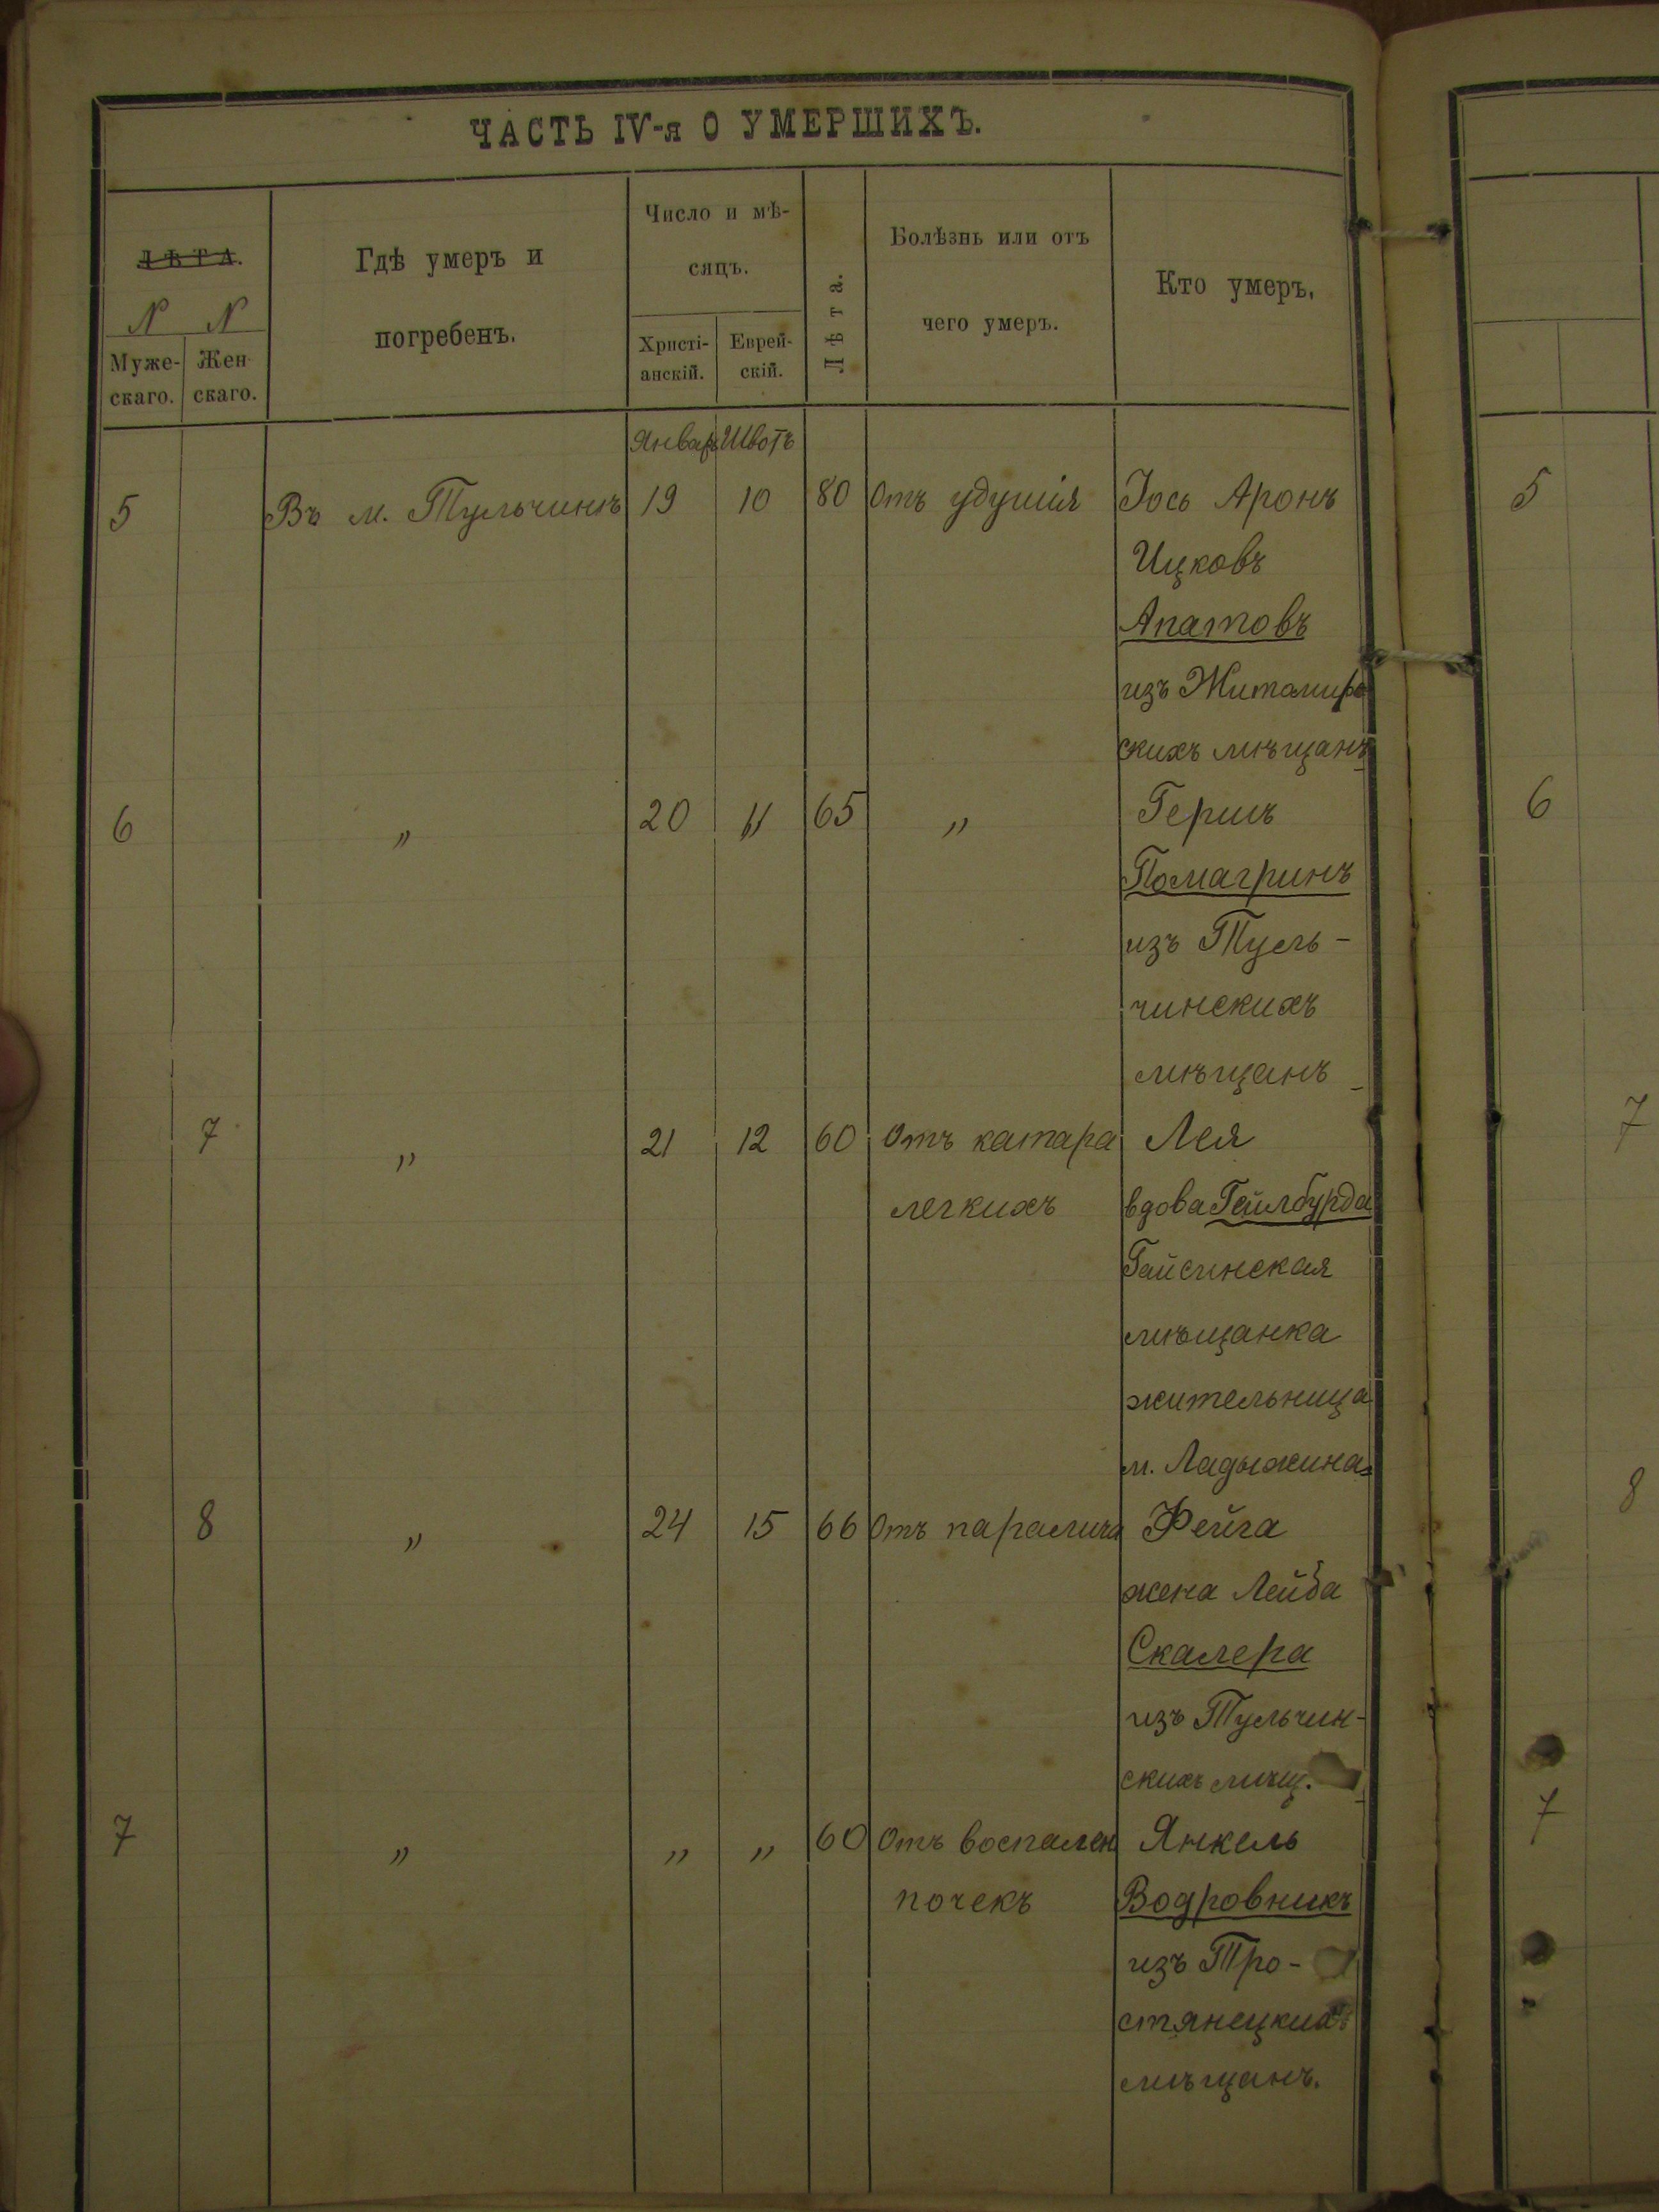 ЧАСТЬ IV-я О УМЕРШИХЪ.
ЛѢТА.
N N
Муже-
скаго.
Жен-
скаго.
Гдѣ умеръ и
погребенъ.
Число и мѣ-
сяцъ.
Христі-
анскій.
Еврей-
скій.
Лѣта.
Болѣзнь или отъ
чего умеръ.
Кто умеръ.
Январь Швотъ
5 Въ м. Тульчинѣ 19 10 80 Отъ удушія Іось Аронъ 5
Ицковъ
Апатовъ
изъ Житомир
скихъ мѣщанъ
6 " 20 11 65 " Гершъ 6
Помагринъ
изъ Туль-
чинскихъ
мѣщанъ
7 " 21 12 60 Отъ катара Лея 7
легкихъ вдова Гейлбурда
Гайсинская
мѣщанка
жительница
м. Ладыжина
8 " 24 15 66 Отъ паралича Фейга 8
жена Лейба
Скалера
изъ Тульчин-
скихъ мѣщ.
7 " " " 60 Отъ воспален Янкель 7
почекъ Водровникъ
изъ Тро-
стянецкихъ
мѣщанъ.